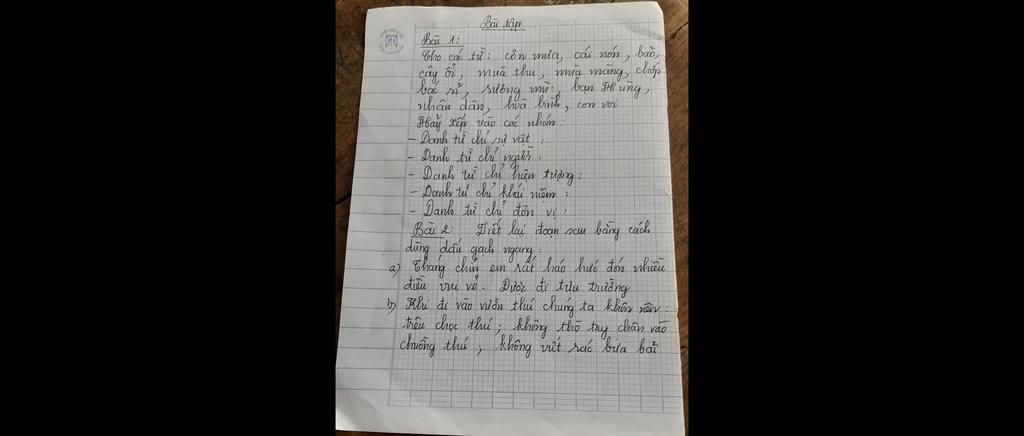 Bài tập
Bài 1:
Cho các từ: cơn mưa, cái nón, bão,
cây ổi, mùa thu, mùa màng, chớp
bác sĩ, sương mù, bạn Hùng,
nhân dân, hoà bình, con voi
Hãy xếp vào các nhóm:
- Danh từ chỉ sự vật:
- Danh từ chỉ người:
- Danh từ chỉ hiện tượng:
- Danh từ chỉ khái niệm:
- Danh từ chỉ đơn vị:
Bài 2: Viết lại đoạn sau bằng cách
dùng dấu gạch ngang:
a) Tháng chín em rất háo hức đón nhiều
điều vui vẻ. Được đi tựu trường
b) Khi đi vào vườn thú chúng ta khôn nên:
trêu chọc thú; không thò tay chân vào
chuồng thú; không vứt rác bừa bãi